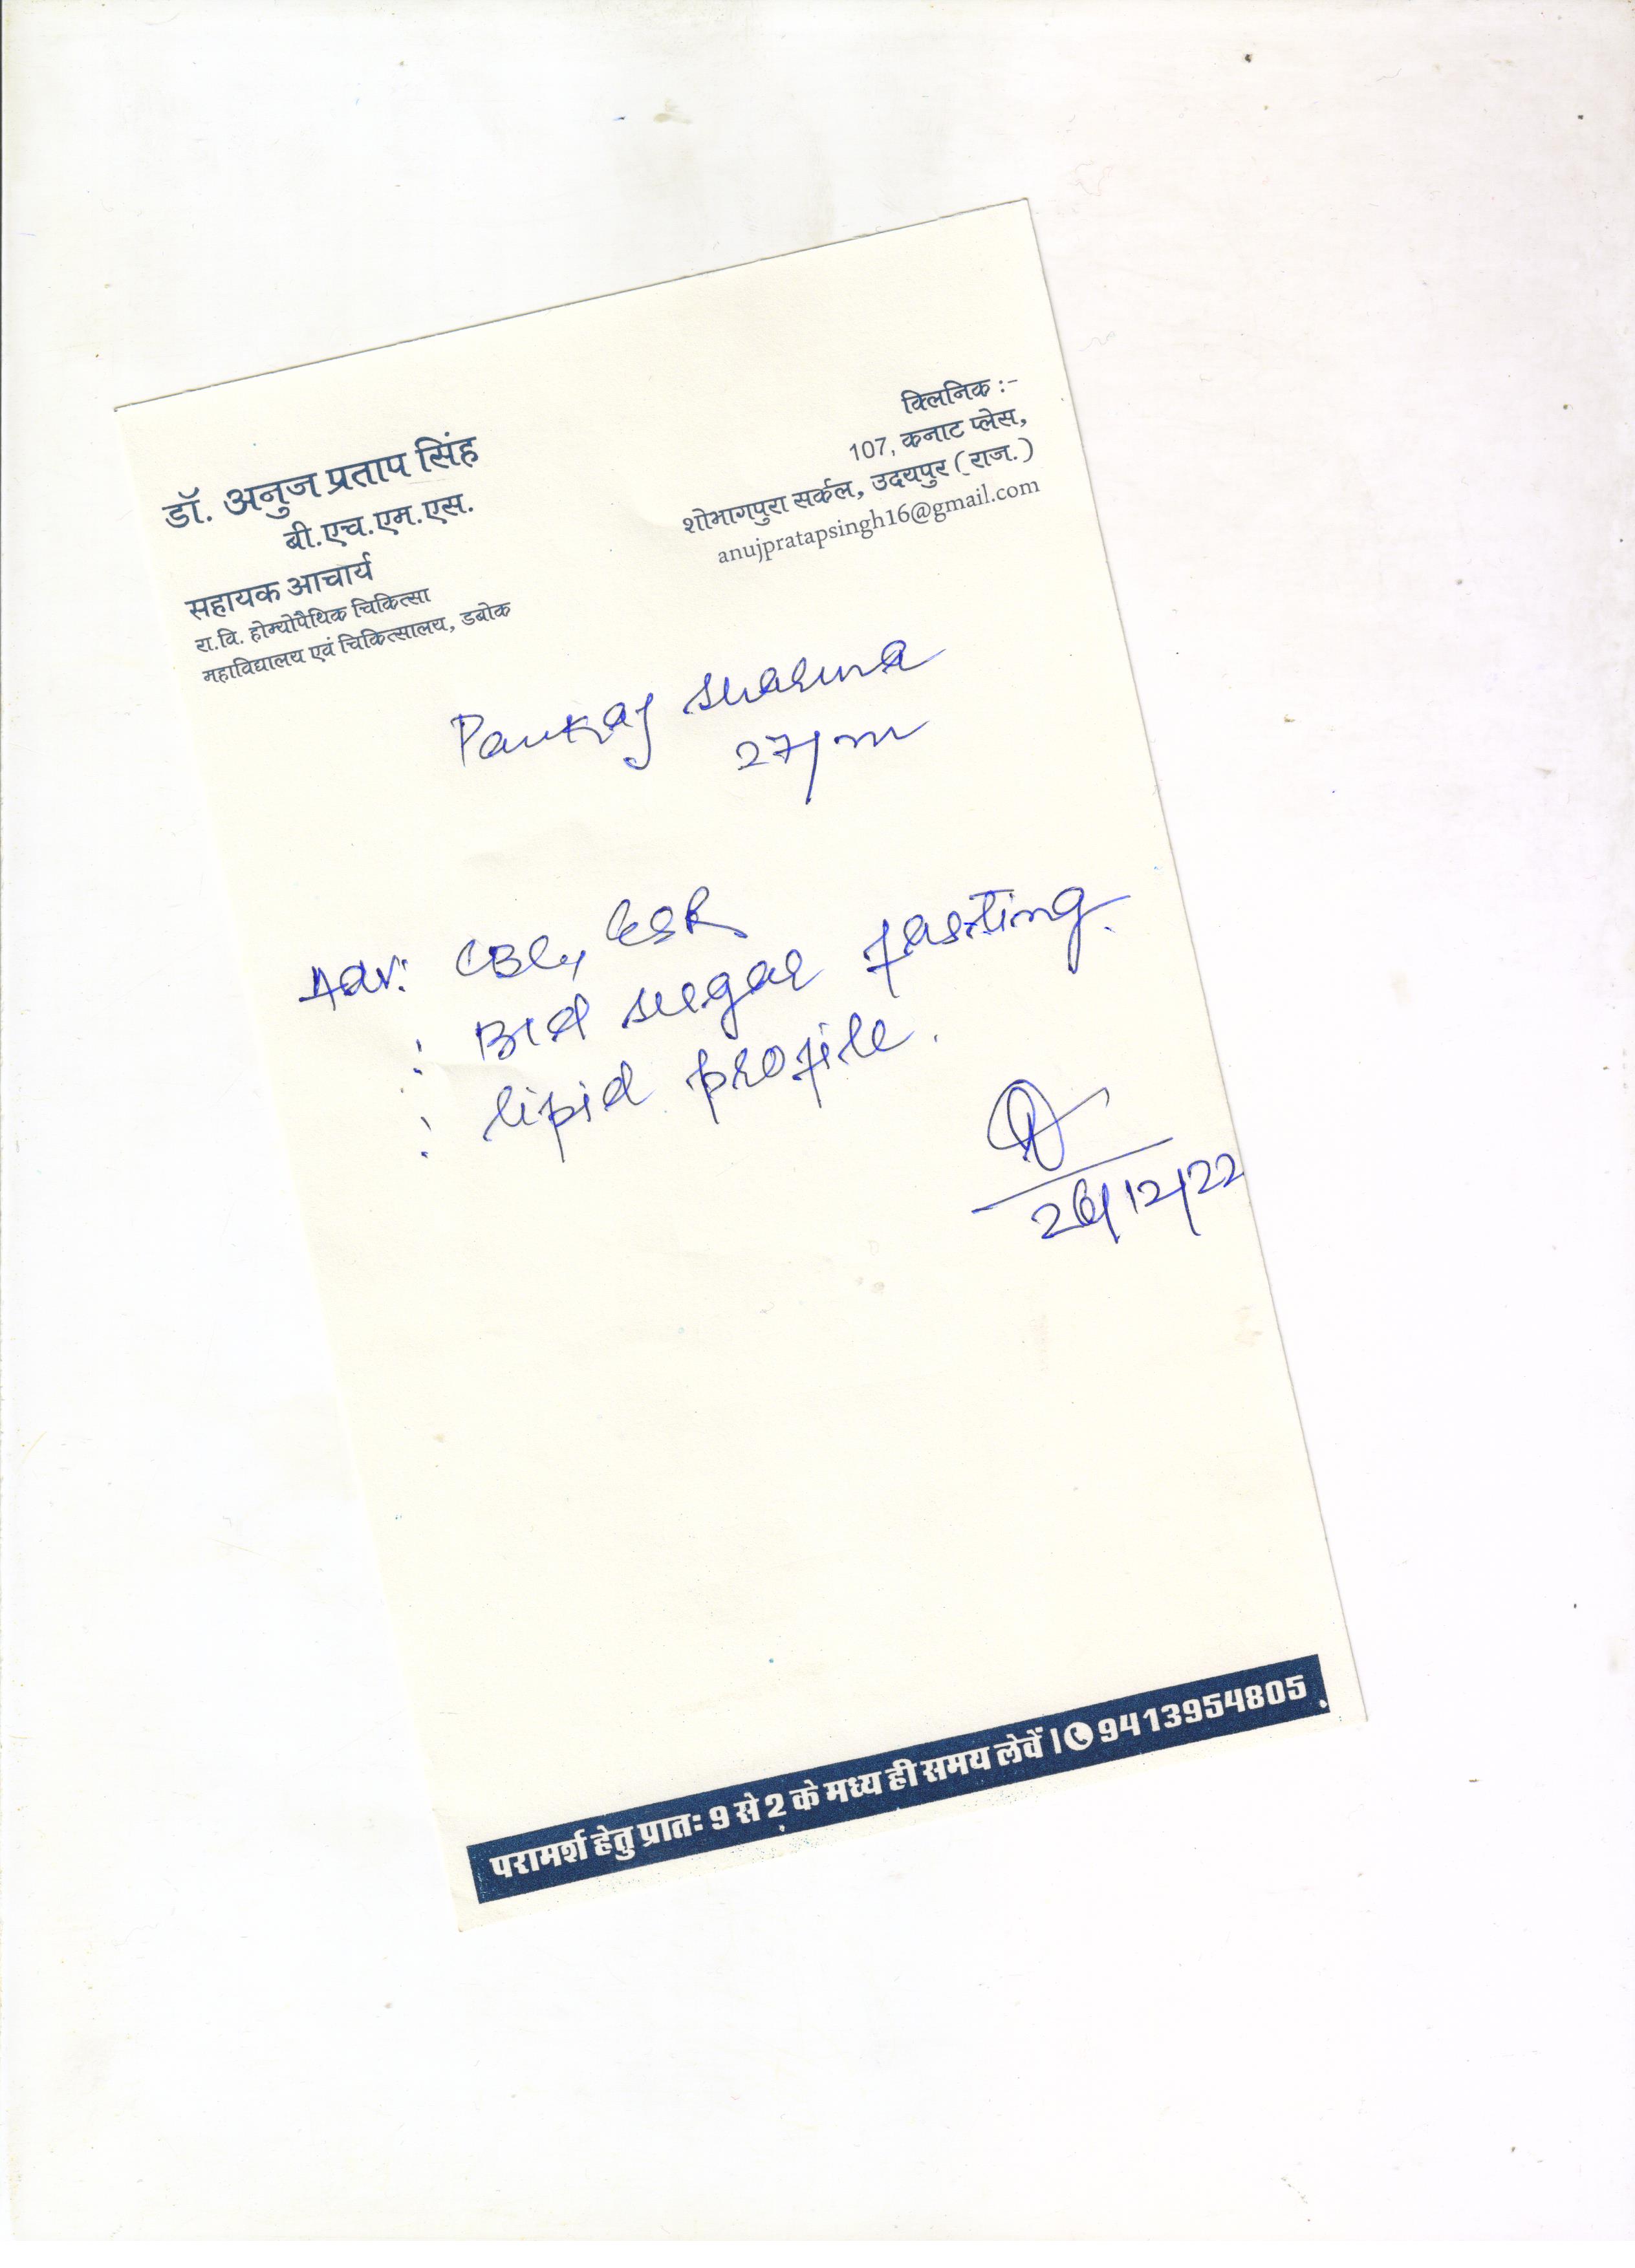 डॉ. अनुज प्रताप सिंह
बी.एच.एम.एस.
सहायक आचार्य
रा.वि. होम्योपैथिक चिकित्सा
महाविद्यालय एवं चिकित्सालय, डबोक
क्लिनिक :-
107, कनाट प्लेस,
शोभागपुरा सर्कल, उदयपुर (राज.)
anujpratapsingh16@gmail.com
Pankaj sharma
27/m
Adv: CBC, ESR
: Bld sugar fasting.
: lipid profile.
26/12/22
परामर्श हेतु प्रातः 9 से 2 के मध्य ही समय लेवें । 9413954805